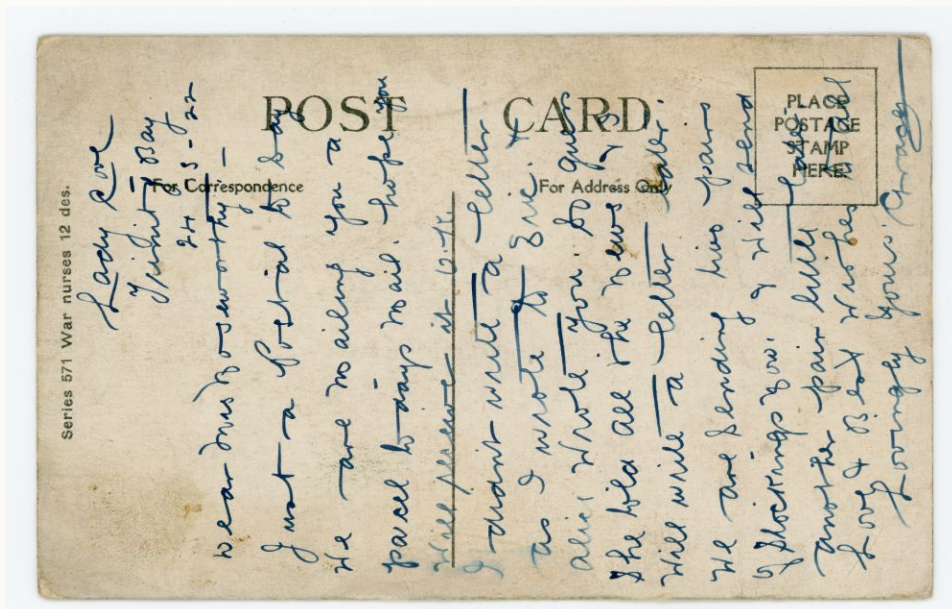 POST CARD
For Correspondence
For Address Only
PLACE
POSTAGE
STAMP
HERE
Series 571 War nurses 12 des.
Lady Cove
Trinity Bay
24-3-22
Dear Mrs Noseworthy-
Just a Postal to Say
We are mailing you a
parcel to-days mail. hopes you
Will receive it O.K.
I didnt write a letter
as I wrote to Eric &
Alice Wrote you. So guess
She told all the News &
Will write a letter later.
We are Sending two pairs
of Stockings now. & Will send
another pair
Love & Best Wishes
Lovingly Yours